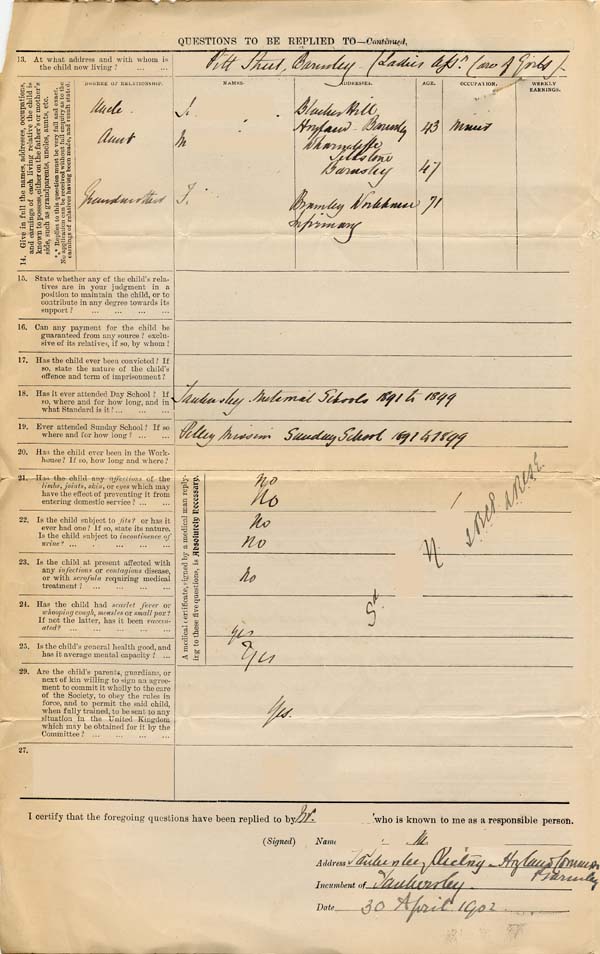 QUESTIONS TO BE REPLIED TO—Continued.
13. At what address and with whom is
the child now living? ... ...
Pitt Street, Barnsley - (Ladies Assn. Care of Girls).
14. Give in full the names, addresses, occupations,
and earnings of each living relative the child is
known to possess, either on the father's or mother's
side, such as grandparents, uncles, aunts, etc.
*** Replies to this question must be very full and exact.
No application can be received without full enquiry as to the
earnings of relatives having been made, and result stated.
DEGREE OF RELATIONSHIP. NAMES. ADDRESSES. AGE. OCCUPATION. WEEKLY EARNINGS.
Uncle J. Blacker Hill
Hoyland - Barnsley 43 Miner
Aunt M
Silkstone
Barnsley 47
Grandmother T. Bramley Workhouse 71
Infirmary
15. State whether any of the child's rela-
tives are in your judgment in a
position to maintain the child, or to
contribute in any degree towards its
support? ... ... ...
16. Can any payment for the child be
guaranteed from any source? exclu-
sive of its relatives, if so, by whom?
17. Has the child ever been convicted? If
so, state the nature of the child's
offence and term of imprisonment?
18. Has it ever attended Day School? If
so, where and for how long, and in
what Standard is it? ... ...
Tankersley National Schools 1891 to 1899
19. Ever attended Sunday School? If so
where and for how long? ... ...
Mission Sunday School 1891 to 1899
20. Has the child ever been in the Work-
house? If so, how long and where?
A medical certificate, signed by a medical man reply-
ing to these five questions, is Absolutely Necessary.
21. Has the child any affections of the
limbs, joints, skin, or eyes which may
have the effect of preventing it from
entering domestic service? ... ...
No
No
22. Is the child subject to fits? or has it
ever had one? If so, state its nature.
Is the child subject to incontinence of
urine? ... ... ... ...
No
No
23. Is the child at present affected with
any infections or contagious disease,
or with scrofula requiring medical
treatment? ... ... ...
No
24. Has the child had scarlet fever or
whooping cough, measles or small pox?
If not the latter, has it been vaccin-
ated? ... ... ... ...
yes
25. Is the child's general health good, and
has it average mental capacity? ...
Yes
29. Are the child's parents, guardians, or
next of kin willing to sign an agree-
ment to commit it wholly to the care
of the Society, to obey the rules in
force, and to permit the said child,
when fully trained, to be sent to any
situation in the United Kingdom
which may be obtained for it by the
Committee? ... ... ... ...
Yes.
27.
I certify that the foregoing questions have been replied to by Mr. who is known to me as a responsible person.
(Signed) Name M
Address Tankersley Rectory - Hoyland Common
Barnsley
Incumbent of Tankersley.
Date 30 April 1902